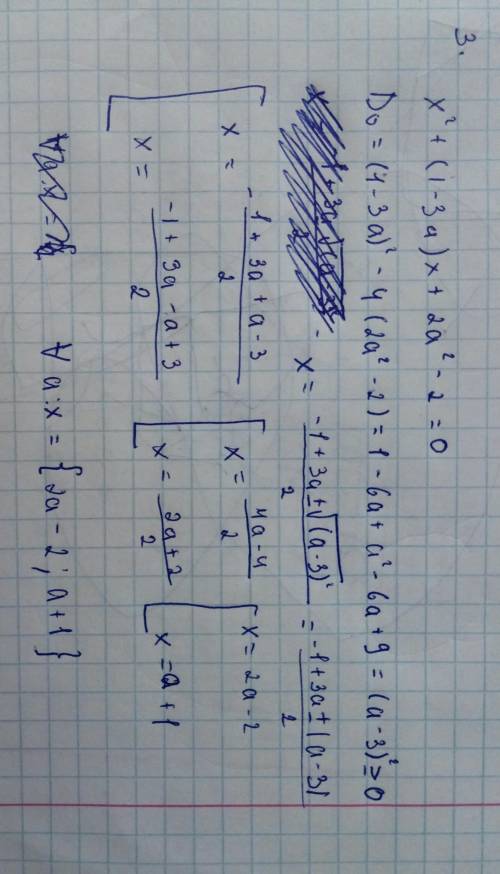 3.
x² + (1-3a)x + 2a² - 2 = 0
D₀ = (1-3a)² - 4(2a² - 2) = 1 - 6a + a² - 6a + 9 = (a-3)² ≥ 0
x = (-1 + 3a ± √(a-3)²)/2 = (-1 + 3a ± |a-3|)/2
[ x = (-1 + 3a + a - 3)/2 [ x = (4a-4)/2 [ x = 2a-2
x = (-1 + 3a - a + 3)/2 x = (2a+2)/2 x = a+1
∀ a: x = {2a-2; a+1}